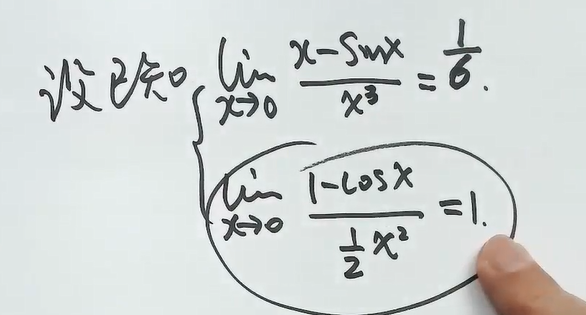 设已知 lim x→0 x-sinx / x³ = 1/6.
lim x→0 1-cosx / ½x² = 1.